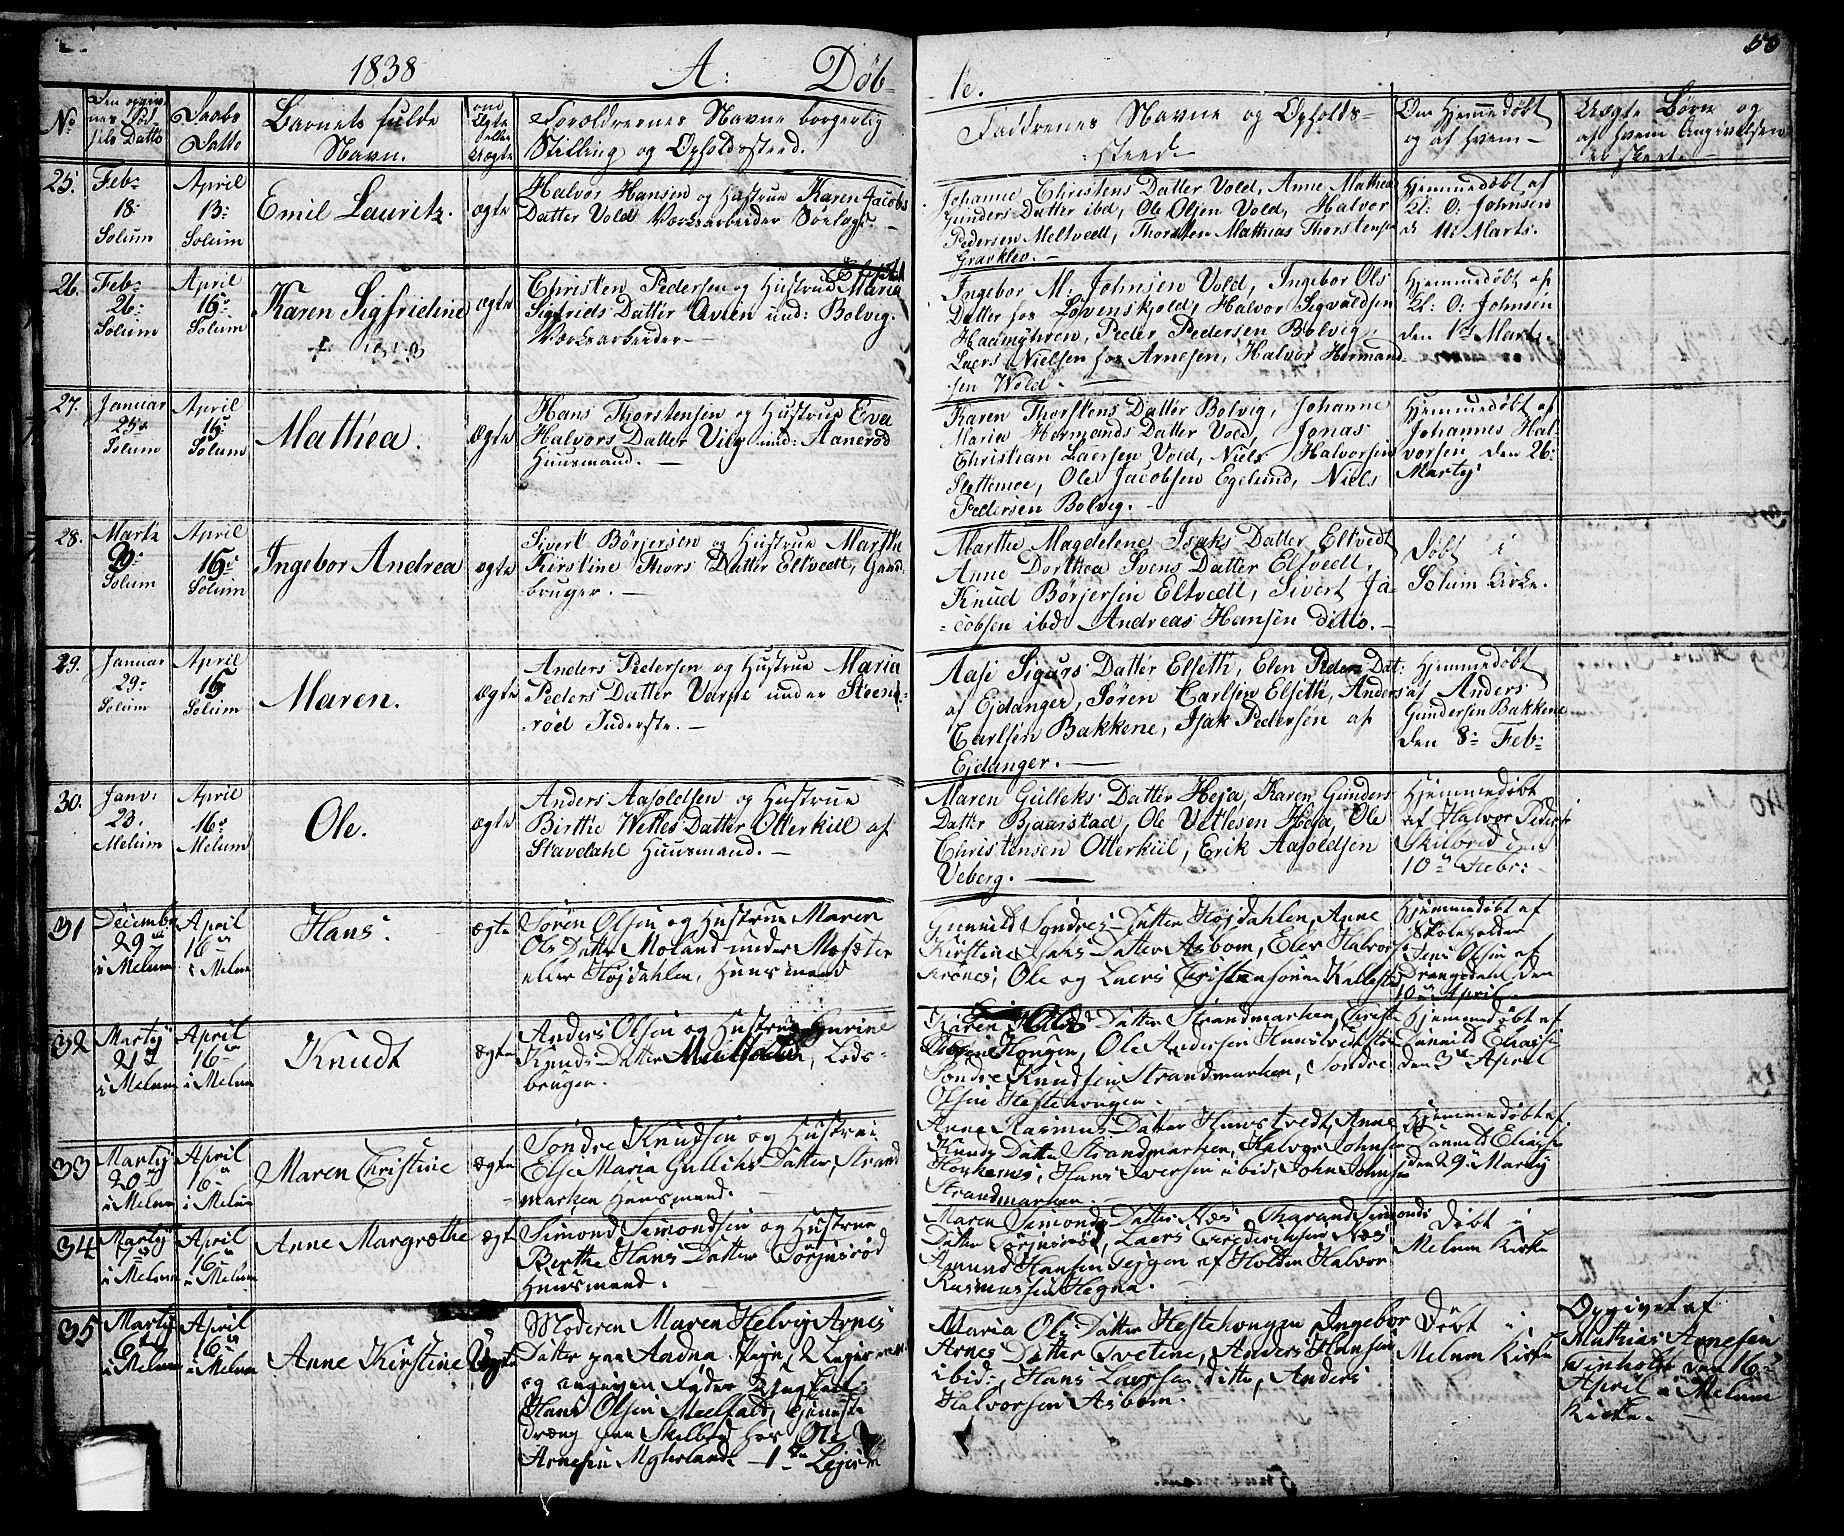 1838 A: Døb-
te.
50
No
Daabs
Datto
Barnets fulde
Navn.
om
Ægte
eller
Uægte
Foreldrernes Navne borgerlig
Stilling og Opholdssteed.
Faddrenes Navne og Opholds-
steed
Om Hjemmedøbt
og af hvem
Uægte Børn og
af hvem Angivelsen
er skeet.
25.
Feb:
18:
Solum
April
13:
Solum
Emil Lauritz.
ægte
Halvor Hansen og Hustrue Karen Jacobs
Datter Vold Værksarbeider
Johanne Christens Datter Vold, Anne Mathea
Gunders Datter ibd, Ole Olsen Vold, Halvor
Pedersen Meltvedt, Thorsten Mathias Thorstensen
Gravklev.
Hjemmedøbt af
Kl: O: Johnsen
d 11 Marts.
26.
Feb:
26:
Solum
April
16:
Solum
Karen Sigfridine
ægte
Christen Pedersen og Hustrue Maria
Sigfrids Datter und: Bolvig.
Værksarbeider
Ingebor M: Johnsen Vold, Ingebor Ols
Datter fos Løvenskjold, Halvor Sigvaldsen
Haamyhren, Peder Pedersen Bolvig,
Laers Nielsen fos Arnesen, Halvor Hermand
sen Vold.
Hjemmedøbt af
Kl: O: Johnsen
den 1ste Marts.
27.
Januar
25:
Solum
April
16:
Solum
Mathea.
ægte
Hans Thorstensen og Hustrue Eva
Halvors Datter Viig und: Aanerød
Huusmand.
Karen Thorstens Datter Bolvig, Johanne
Maria Hermands Datter Vold, Jonas
Christian Laersen Vold, Niels Halvorsen
Slettemoe, Ole Jacobsen Egelund, Niels
Pedersen Bolvig.
Hjemmedøbt af
Johannes Hal-
vorsen den 26:
Martÿ
28.
Marts
Solum
April
16:
Solum
Ingebor Andrea
ægte
Sivert Børjersen og Hustrue Marthe
Kirstine Thors Datter Eltvedt, Gaard
bruger.
Marthe Magdelene Isaks Datter Eltvedt
Anne Dorthea Svens Datter Eltvedt,
Knud Børjersen Eltvedt, Sivert Ja-
cobsen ibd Andreas Hansen ditto.
Døbt i
Solum Kirke.
29.
Januar
29:
Solum
April
16
Solum
Maren.
ægte
Anders Pedersen og Hustrue Maria
Peders Datter Varpe under Steens-
rød Inderste.
Aase Sigurs Datter Elseth, Elen Peders Dat:
af Ejdanger, Søren Carlsen Elseth, Anders
Carlsen Bakkene, Isak Pedersen af
Ejdanger.
Hjemmedøbt
af Anders
Gundersen Bakkene
den 8: Feb:
30.
Janv:
23.
Melum
April
16:
Melum
Ole.
ægte
Anders Aasoldsen og Hustrue
Birthe Wetles Datter Otterkiil af
Stavdahl Huusmand.
Maren Gulleks Datter Heja, Karen Gunders
Datter Bjaarstad, Ole Vetlesen Heja, Ole
Christensen Otterkiil, Erik Aasoldsen
Veberg.
Hjemmedøbt
af Halvor Peders
Skilbred den
10de Febr:
31
Decembr
29de
i Melum
April
16de
i Melum
Hans.
ægte
Søren Olsen og Hustrue Maren
Ols Datter Moland under Mosæter
eller Højdahlen, Huusmand
Gunnild Søndres Datter Højdahlen, Anne
Kirstine Isaks Datter Asbom, Elev Halvors
Ole og Laers Christensønner
Hjemmedøbt af
Skoleholder
Jens Olsen af
Drangedahl den
10de April
32
Martÿ
21de
i Melum
April
16de
i Melum
Knudt
ægte
Anders Olsen og Hustrue
Knuds Datter, Leds-
bruger.
Karen Datter Strandmarken,
Ole Andersen
Søndre Knudsen Strandmarken, Søndre
Olsen Hestehougen.
Hjemmedøbt af
Gunnild Eliasse
den 3de April
33
Martÿ
20de
i Melum
April
16de
i Melum
Maren Christine
ægte
Søndre Knudsen og Hustrue
Else Maria Gulliks Datter, Strand
marken Huusmand.
Anne Rasmus Datter Huustvedt, Anne
Knuds Datter Strandmarken, Halvor Johnsen
Hans Iversen ibid, John Johnsen
Strandmarken.
Hjemmedøbt af
Gunnild Eliasse
den 29de Martÿ
34
Martÿ
i Melum
April
16de
i Melum
Anne Margrethe
ægte
Simond Simondsen og Hustrue
Berthe Hans Datter Torjusrød
Huusmand.
Maren Simonds Datter Næs, Simonds
Datter Torjusrød, Laers Frederiksen Næs
Amund Hansen af Holden Halvor
Rasmussen Hegna.
Døbt i
Melum Kirke
35
Martÿ
6te
i Melum
April
16de
i Melum
Anne Kirstine
Uægte
Moderen Maren Helvig Arnes
Datter paa
og angiven Fader Ungkarl
Hans Olsen, tjeneste
dræng paa Skilbred hos Ole
Arnesen
Maria Ols Datter Hestehougen Ingebor
Arnes Datter Tvetene, Anders Hansen
ibid:, Hans Laersen ditto, Anders
Halvorsen Asbom.
Døbt i
Melum Kirke
Opgivet af
Mathias Arnesen
den 16de
April i Melum
Kirke.